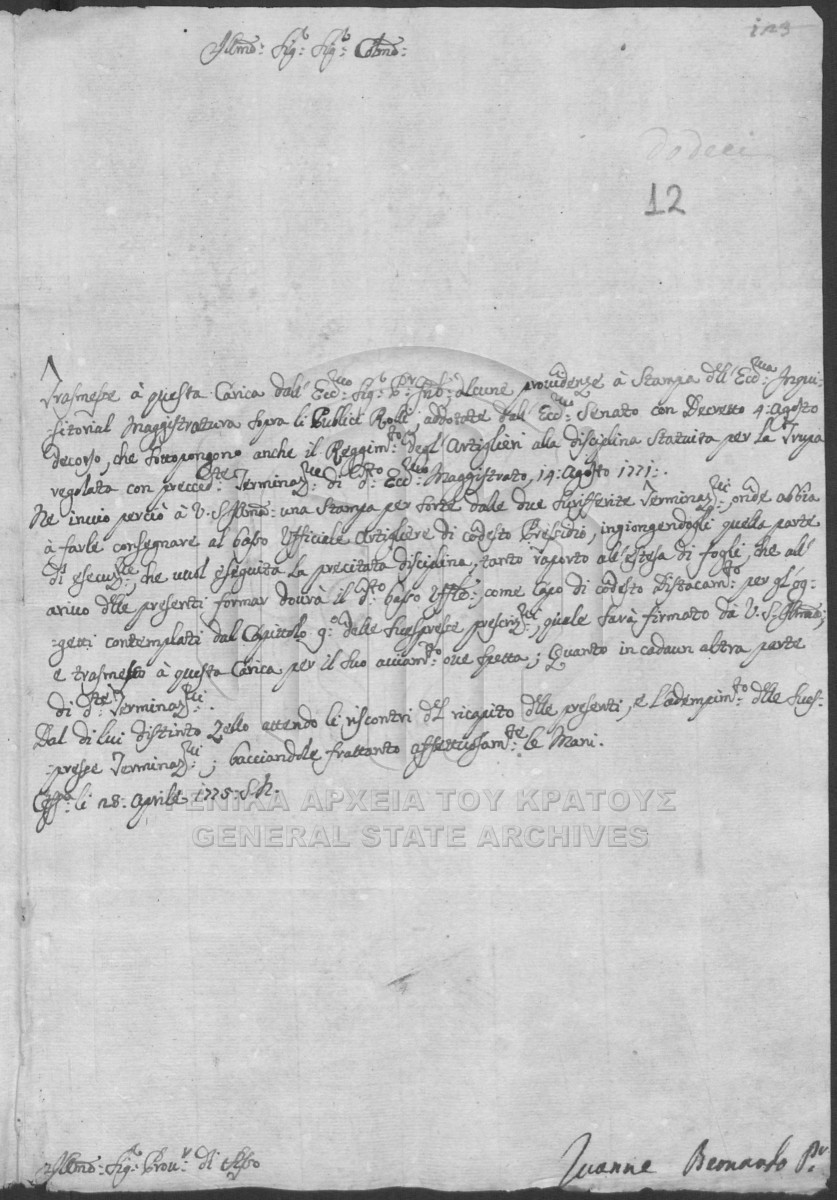 123
Illmo: Sigr: Sigr: Colmo:
dodeci
12
Trasmesse à questa Carica dall' Eccmo: Sigr: Pr: Gnl: alcune providenze à Stampa dell' Eccma: Inqui-
sitorial Maggistratura sopra li Publici Rolli, addotate dall' Eccmo: Senato con Decretto 4: Agosto
decorso, che sottopongono anche il Reggimto: degl' Artiglieri alla disciplina Statuita per la Trupa
regolata con precedte: Terminazne: di dto: Eccmo: Maggistrato, 14: Agosto 1771:.
Ne invio perciò à V. S. Illma: una Stampa per sorte dalle due surifferite Terminazni:, onde abbia
à farle consegnare al basso Ufficiale Artigliere di codesto Pressidio, ingiongendogli quella parte
di esecuzne:, che vuol eseguita la precitata disciplina, tanto raporto all' estesa di fogli, che all'
arivo delle presenti formar dovrà il dto: basso Uffle:, come Capo di codesto Distacamto: per gl' og-
-getti contemplati dal Capittolo 9:o delle Suespresse prescrizni:, quale sarà firmato dà V. S. Illma:,
e trasmesso à questa Carica per il suo aviamto: ove spetta; Quanto in cadaun altra parte
di dte: Terminazni:.
Dal di lui distinto Zello attendo li riscontri del ricapito delle presenti, e l'adempimto: delle Sues-
-presse Terminazni:; bacciandole frattanto affettuosamte: le Mani.
li 28: Aprile 1775: S. N.
ΓΕΝΙΚΑ ΑΡΧΕΙΑ ΤΟΥ ΚΡΑΤΟΥΣ
GENERAL STATE ARCHIVES
Illmo: Sigr: Provr: di
Zuanne Bernardo Pr: